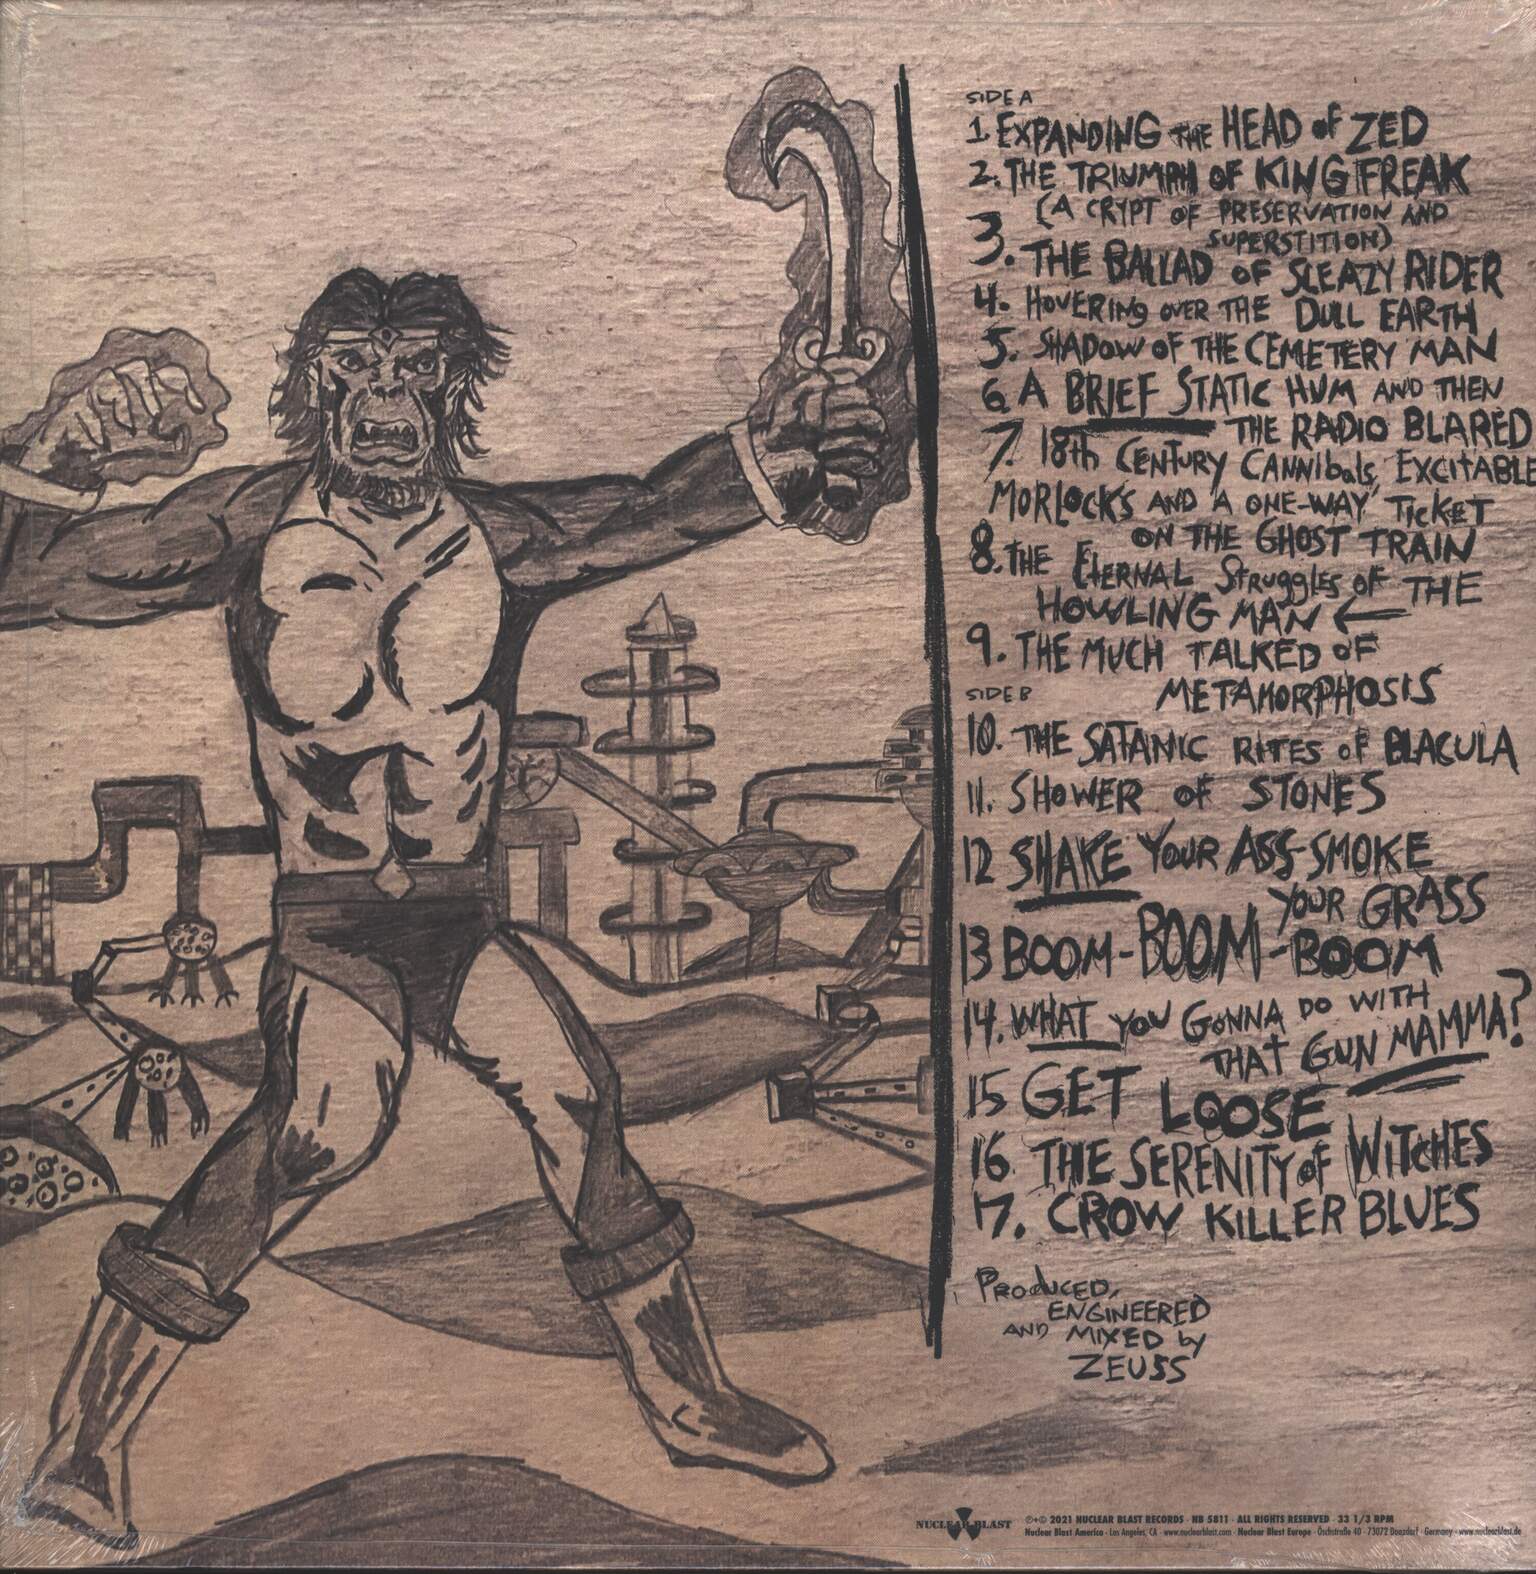 SIDE A
1. EXPANDING THE HEAD OF ZED
2. THE TRIUMPH OF KING FREAK
(A CRYPT OF PRESERVATION AND
SUPERSTITION)
3. THE BALLAD OF SLEAZY RIDER
4. HOVERING OVER THE DULL EARTH
5. SHADOW OF THE CEMETERY MAN
6. A BRIEF STATIC HUM AND THEN
THE RADIO BLARED
7. 18th CENTURY CANNIBALS, EXCITABLE
MORLOCKS AND A ONE-WAY TICKET
ON THE GHOST TRAIN
8. THE ETERNAL STRUGGLES OF THE
HOWLING MAN ←
9. THE MUCH TALKED OF
METAMORPHOSIS
SIDE B
10. THE SATANIC RITES OF BLACULA
11. SHOWER OF STONES
12 SHAKE YOUR ASS-SMOKE
YOUR GRASS
13 BOOM-BOOM-BOOM
14. WHAT YOU GONNA DO WITH
THAT GUN MAMMA?
15 GET LOOSE
16. THE SERENITY OF WITCHES
17. CROW KILLER BLUES
PRODUCED,
ENGINEERED
AND MIXED by
ZEUSS
NUCLEAR BLAST
℗+© 2021 NUCLEAR BLAST RECORDS · NB 5811 · ALL RIGHTS RESERVED · 33 1/3 RPM
Nuclear Blast America · Los Angeles, CA · www.nuclearblast.com · Nuclear Blast Europe · Öschstraße 40 · 73072 Donzdorf · Germany · www.nuclearblast.de